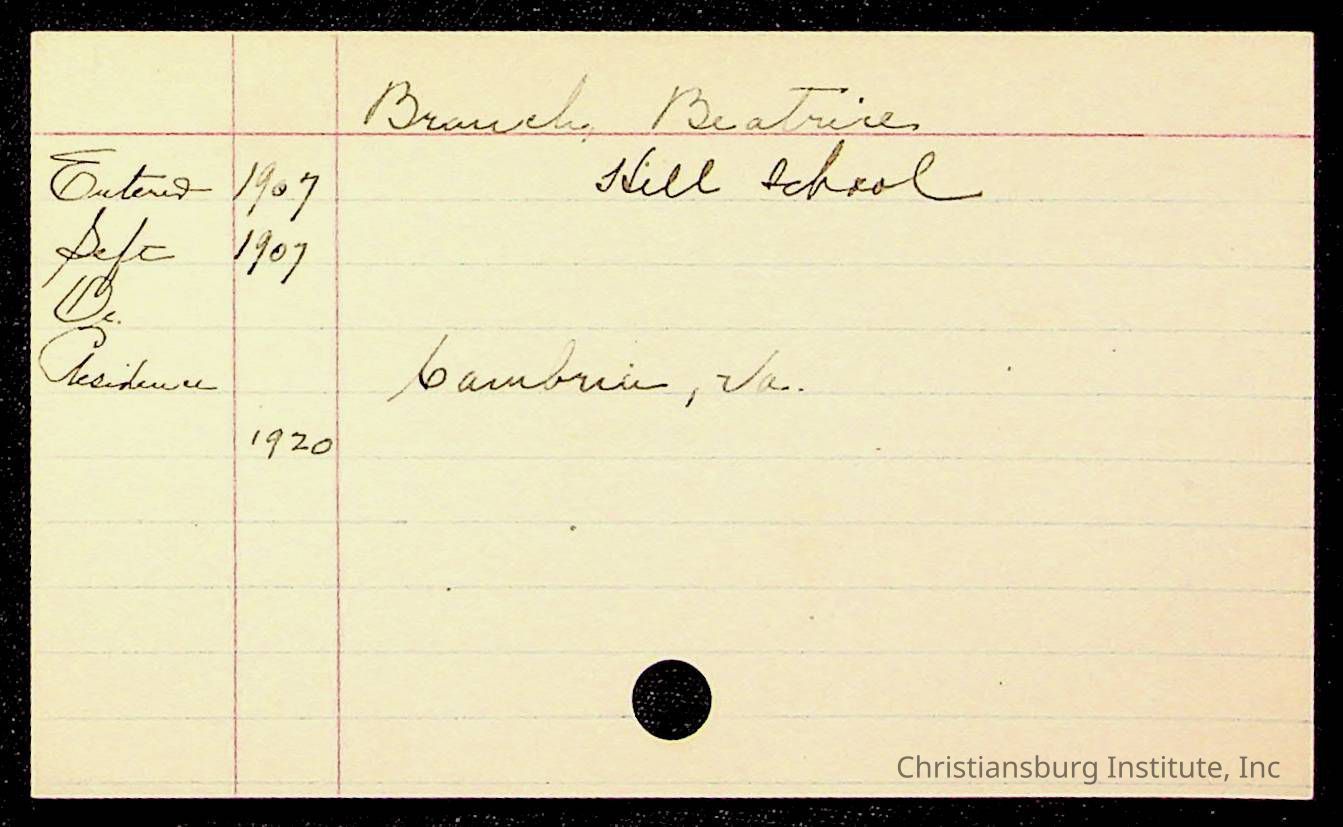 Branch, Beatrice
Entered 1907 Hill School
Left 1907
Residence Cambria, Va.
1920
Christiansburg Institute, Inc